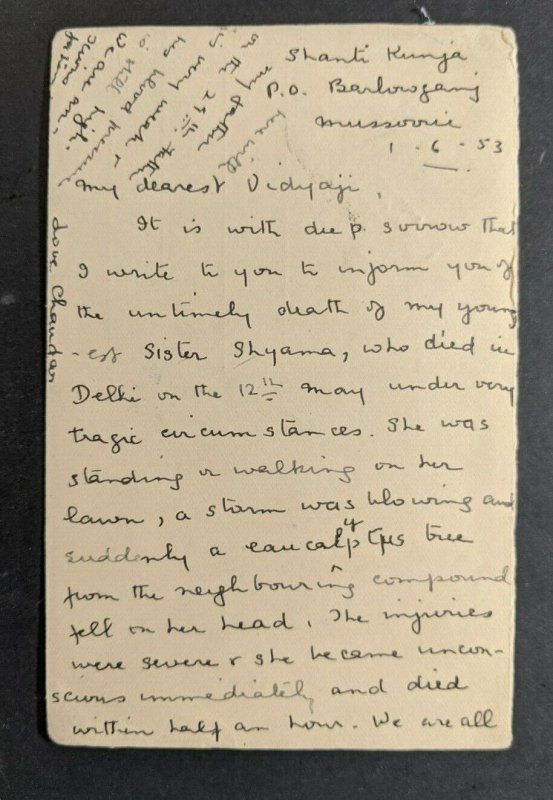 Shanti Kunja
P.O. Barlowganj
Mussoorie
1 - 6 - 53
My dearest Vidyaji,
It is with deep sorrow that
I write to you to inform you of
the untimely death of my young
-est Sister Shyama, who died in
Delhi on the 12th May under very
tragic circumstances. She was
standing or walking on her
lawn, a storm was blowing and
suddenly a eaucalyptus tree
from the neighbouring compound
fell on her head. The injuries
were severe & she became uncon-
scious immediately and died
within half an hour. We are all
my father
on the 29th
is very weak &
his blood pressure
is still high.
We are
Love Chandan